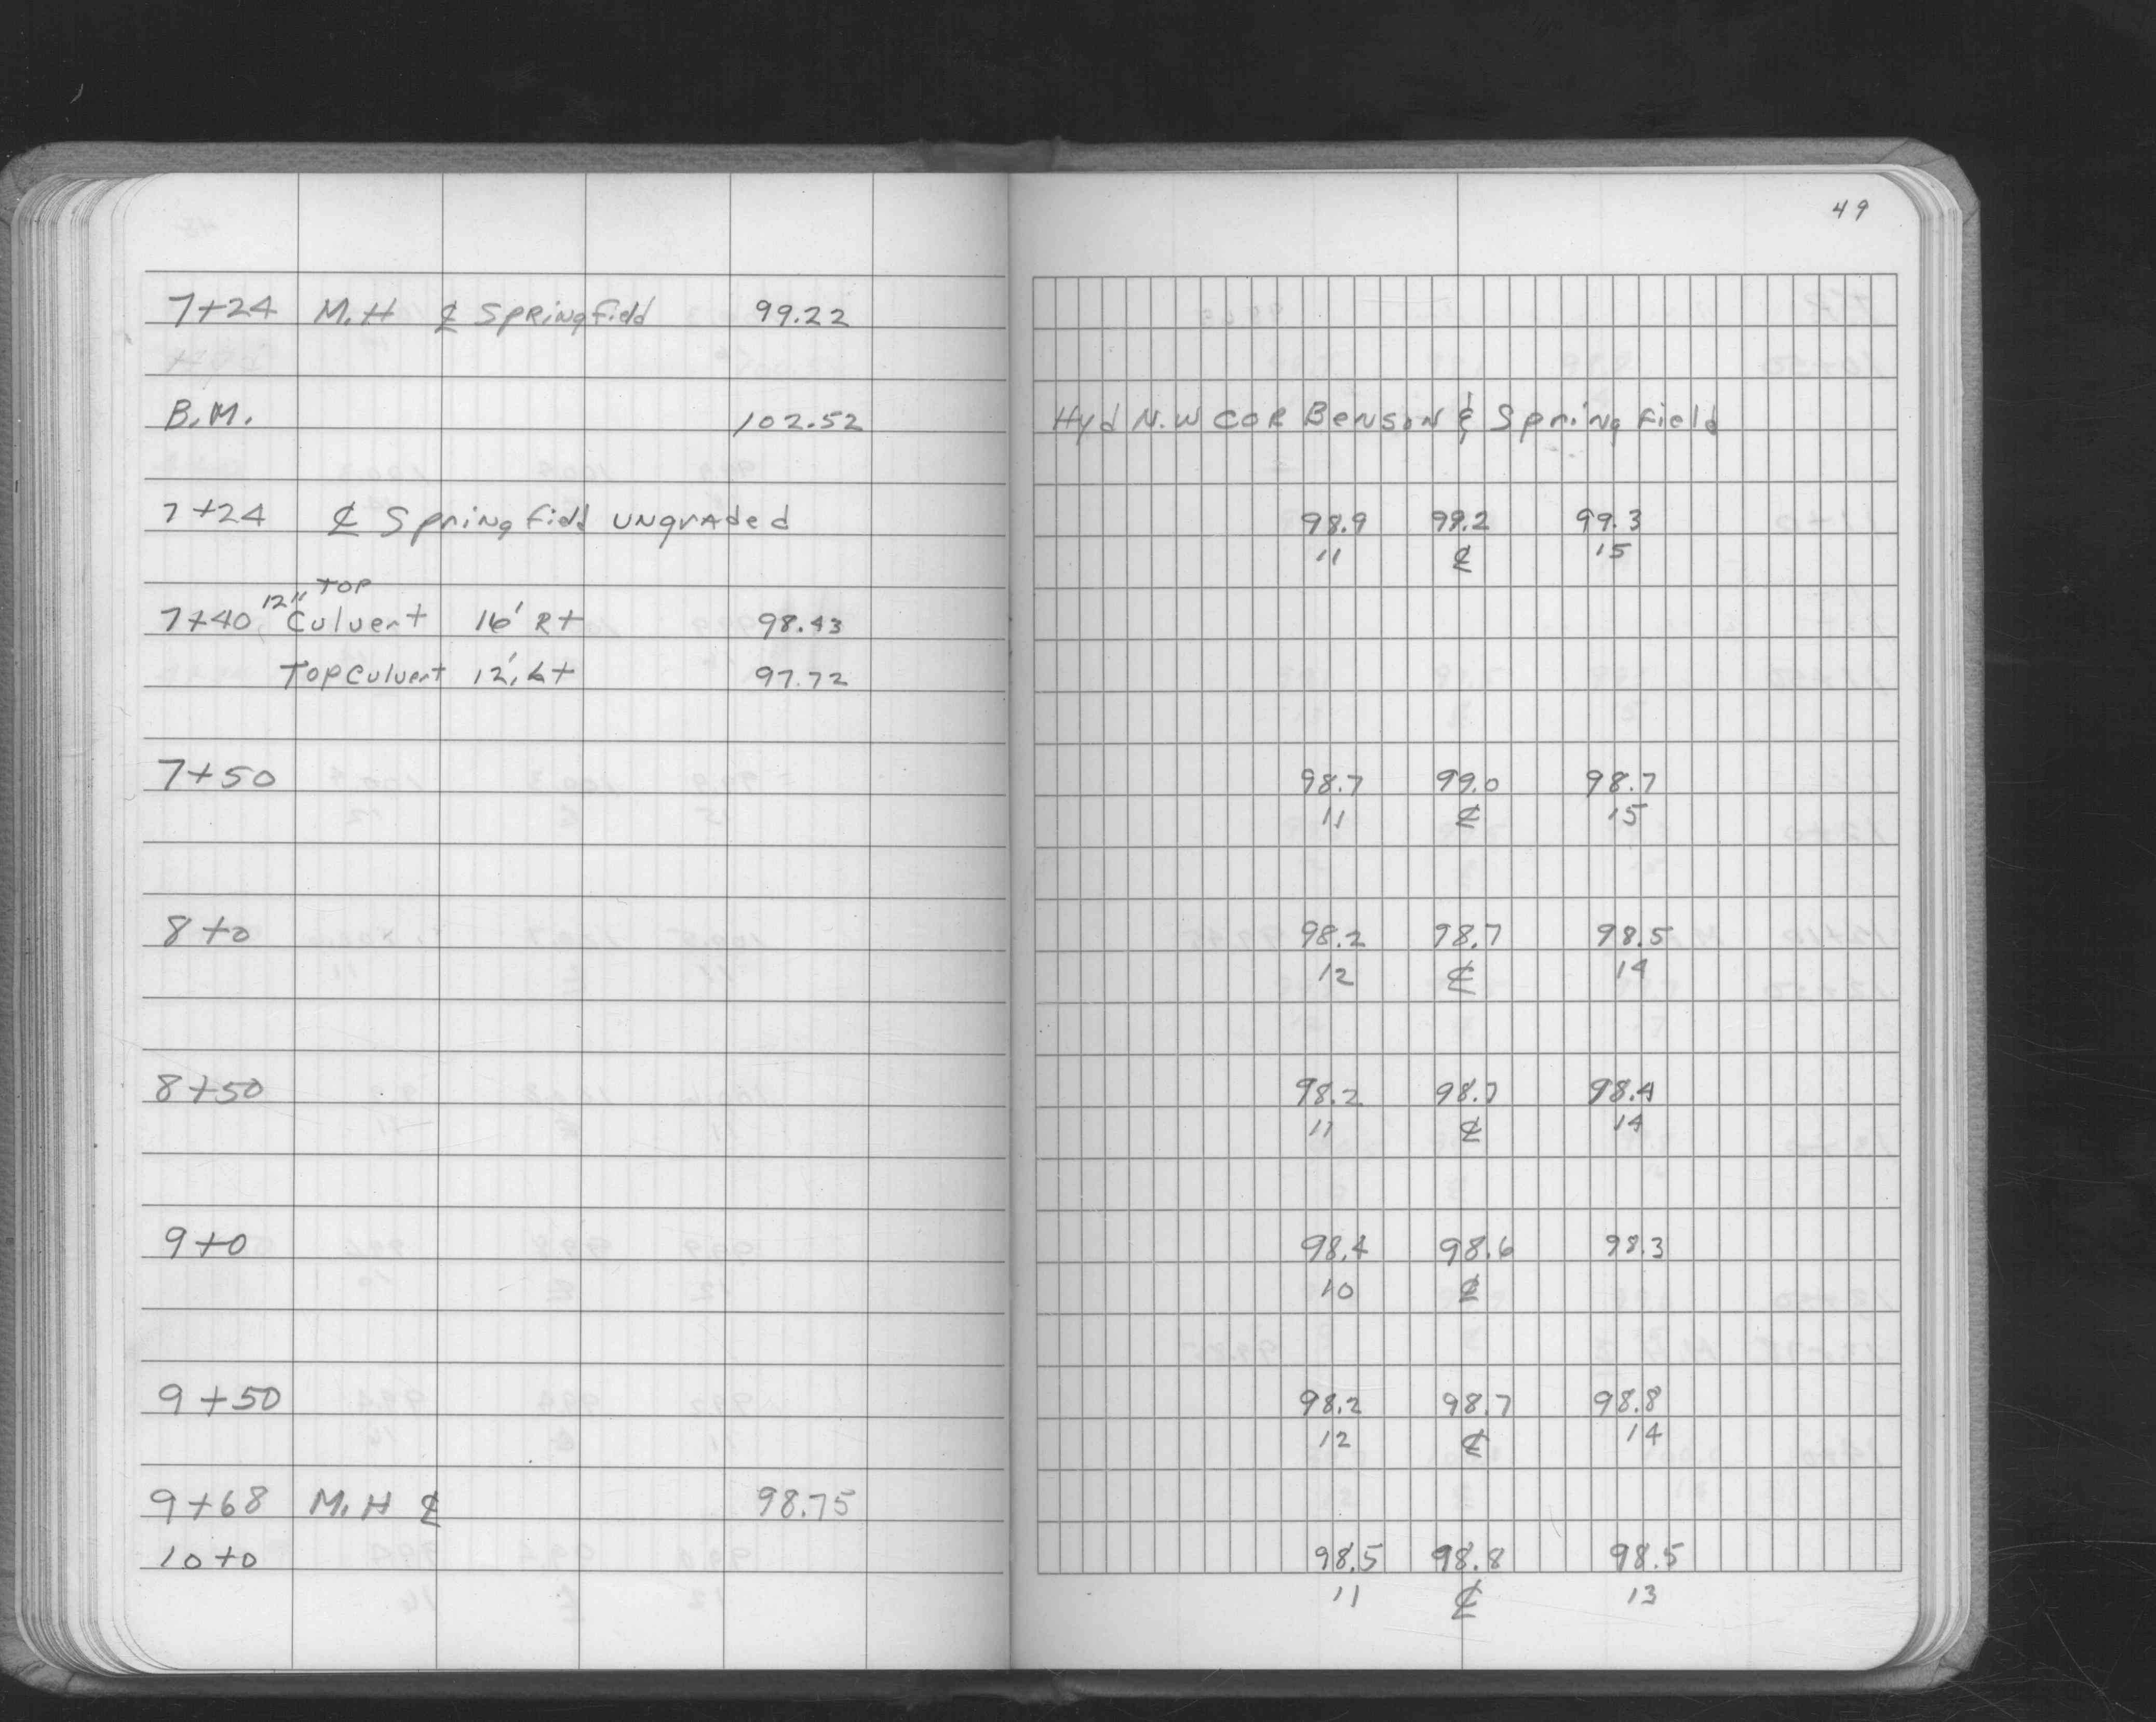 49
7+24 M.H ℄ Springfield 99.22
B.M. 102.52 Hyd N.W COR Benson & Springfield
7+24 ℄ Springfield UNgrAded 98.9 99.2 99.3
11 ℄ 15
12" TOP
7+40 Culvert 16' Rt 98.43
Top Culvert 12' Lt 97.72
7+50 98.7 99.0 98.7
11 ℄ 15
8+0 98.2 98.7 98.5
12 ℄ 14
8+50 98.2 98.7 98.4
11 ℄ 14
9+0 98.4 98.6 98.3
10 ℄
9+50 98.2 98.7 98.8
12 ℄ 14
9+68 M.H ℄ 98.75
10+0 98.5 98.8 98.5
11 ℄ 13